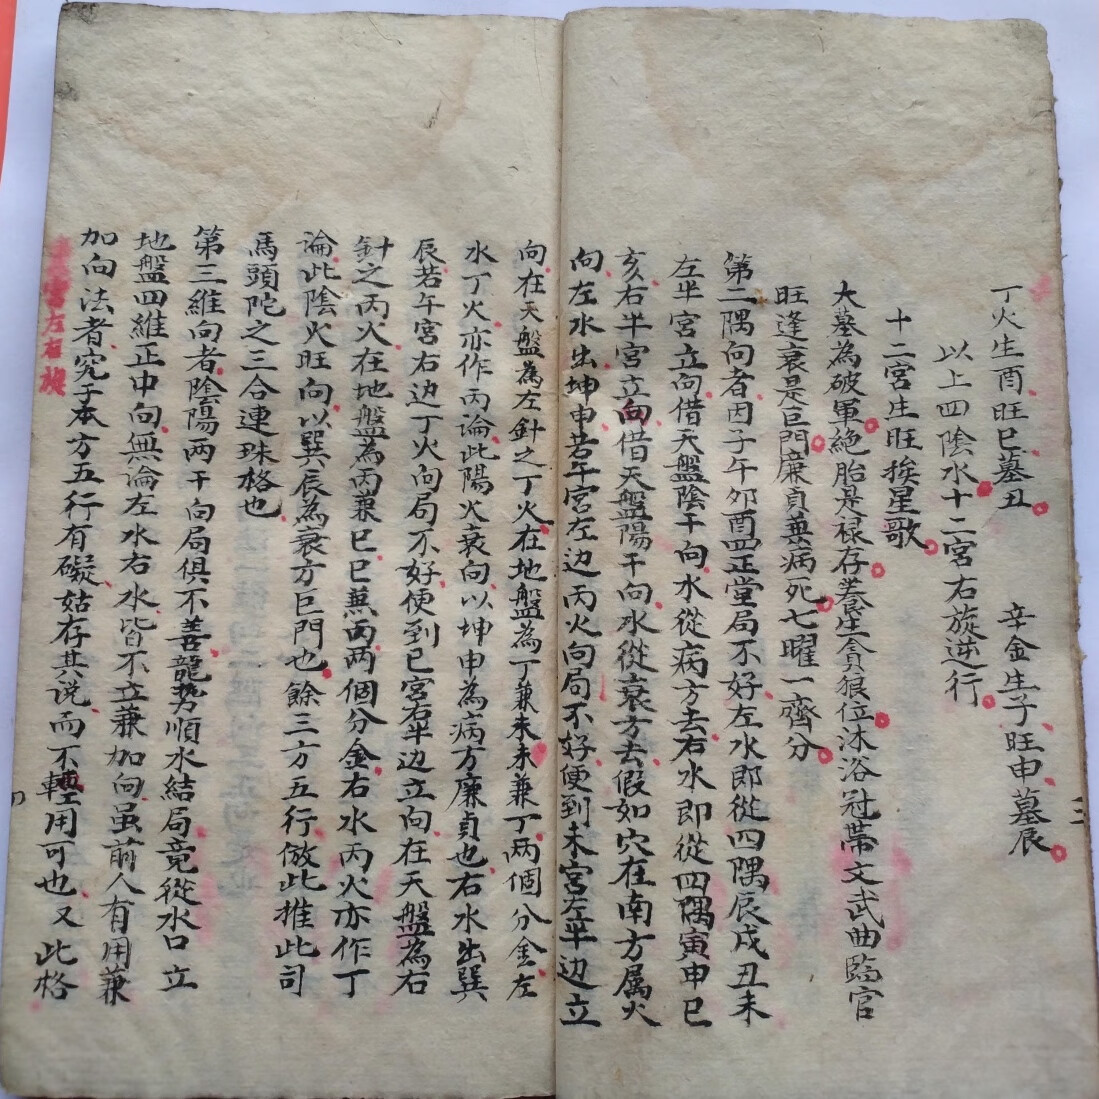 丁火生酉旺巳墓丑 辛金生子旺申墓辰
以上四陰水十二宮右旋逆行
十二宮生旺挨星歌
大墓為破軍絶胎是禄存養生貪狼位沐浴冠帶文武曲臨官
旺逢衰是巨門廉貞並病死七曜一齊分
第二隅向者因子午夘酉四正堂局不好左水即從四隅辰戌丑未
左半宮立向借天盤陰干向水從病方去右水即從四隅寅申巳
亥右半宮立向借天盤陽干向水從衰方去假如穴在南方属火
向左水出坤申若午宮左边丙火向局不好便到未宮左半边立
向在天盤為左針之丁火在地盤為丁兼未未兼丁两個分金左
水丁火亦作丙論此陽火衰向以坤申為病方廉貞也右水出巽
辰若午宮右边丁火向局不好便到巳宮右半边立向在天盤為右
針之丙火在地盤為丙兼巳巳兼丙两個分金右水丙火亦作丁
論此陰火旺向以巽辰為衰方巨門也餘三方五行倣此推此司
馬頭陀之三合連珠格也
第三維向者陰陽两干向局俱不善龍势順水結局竟從水口立
地盤四維正中向無淪左水右水皆不立兼加向虽前人有用兼
加向法者究于本方五行有礙姑存其说而不輕用可也又此格
宮左右旋
三